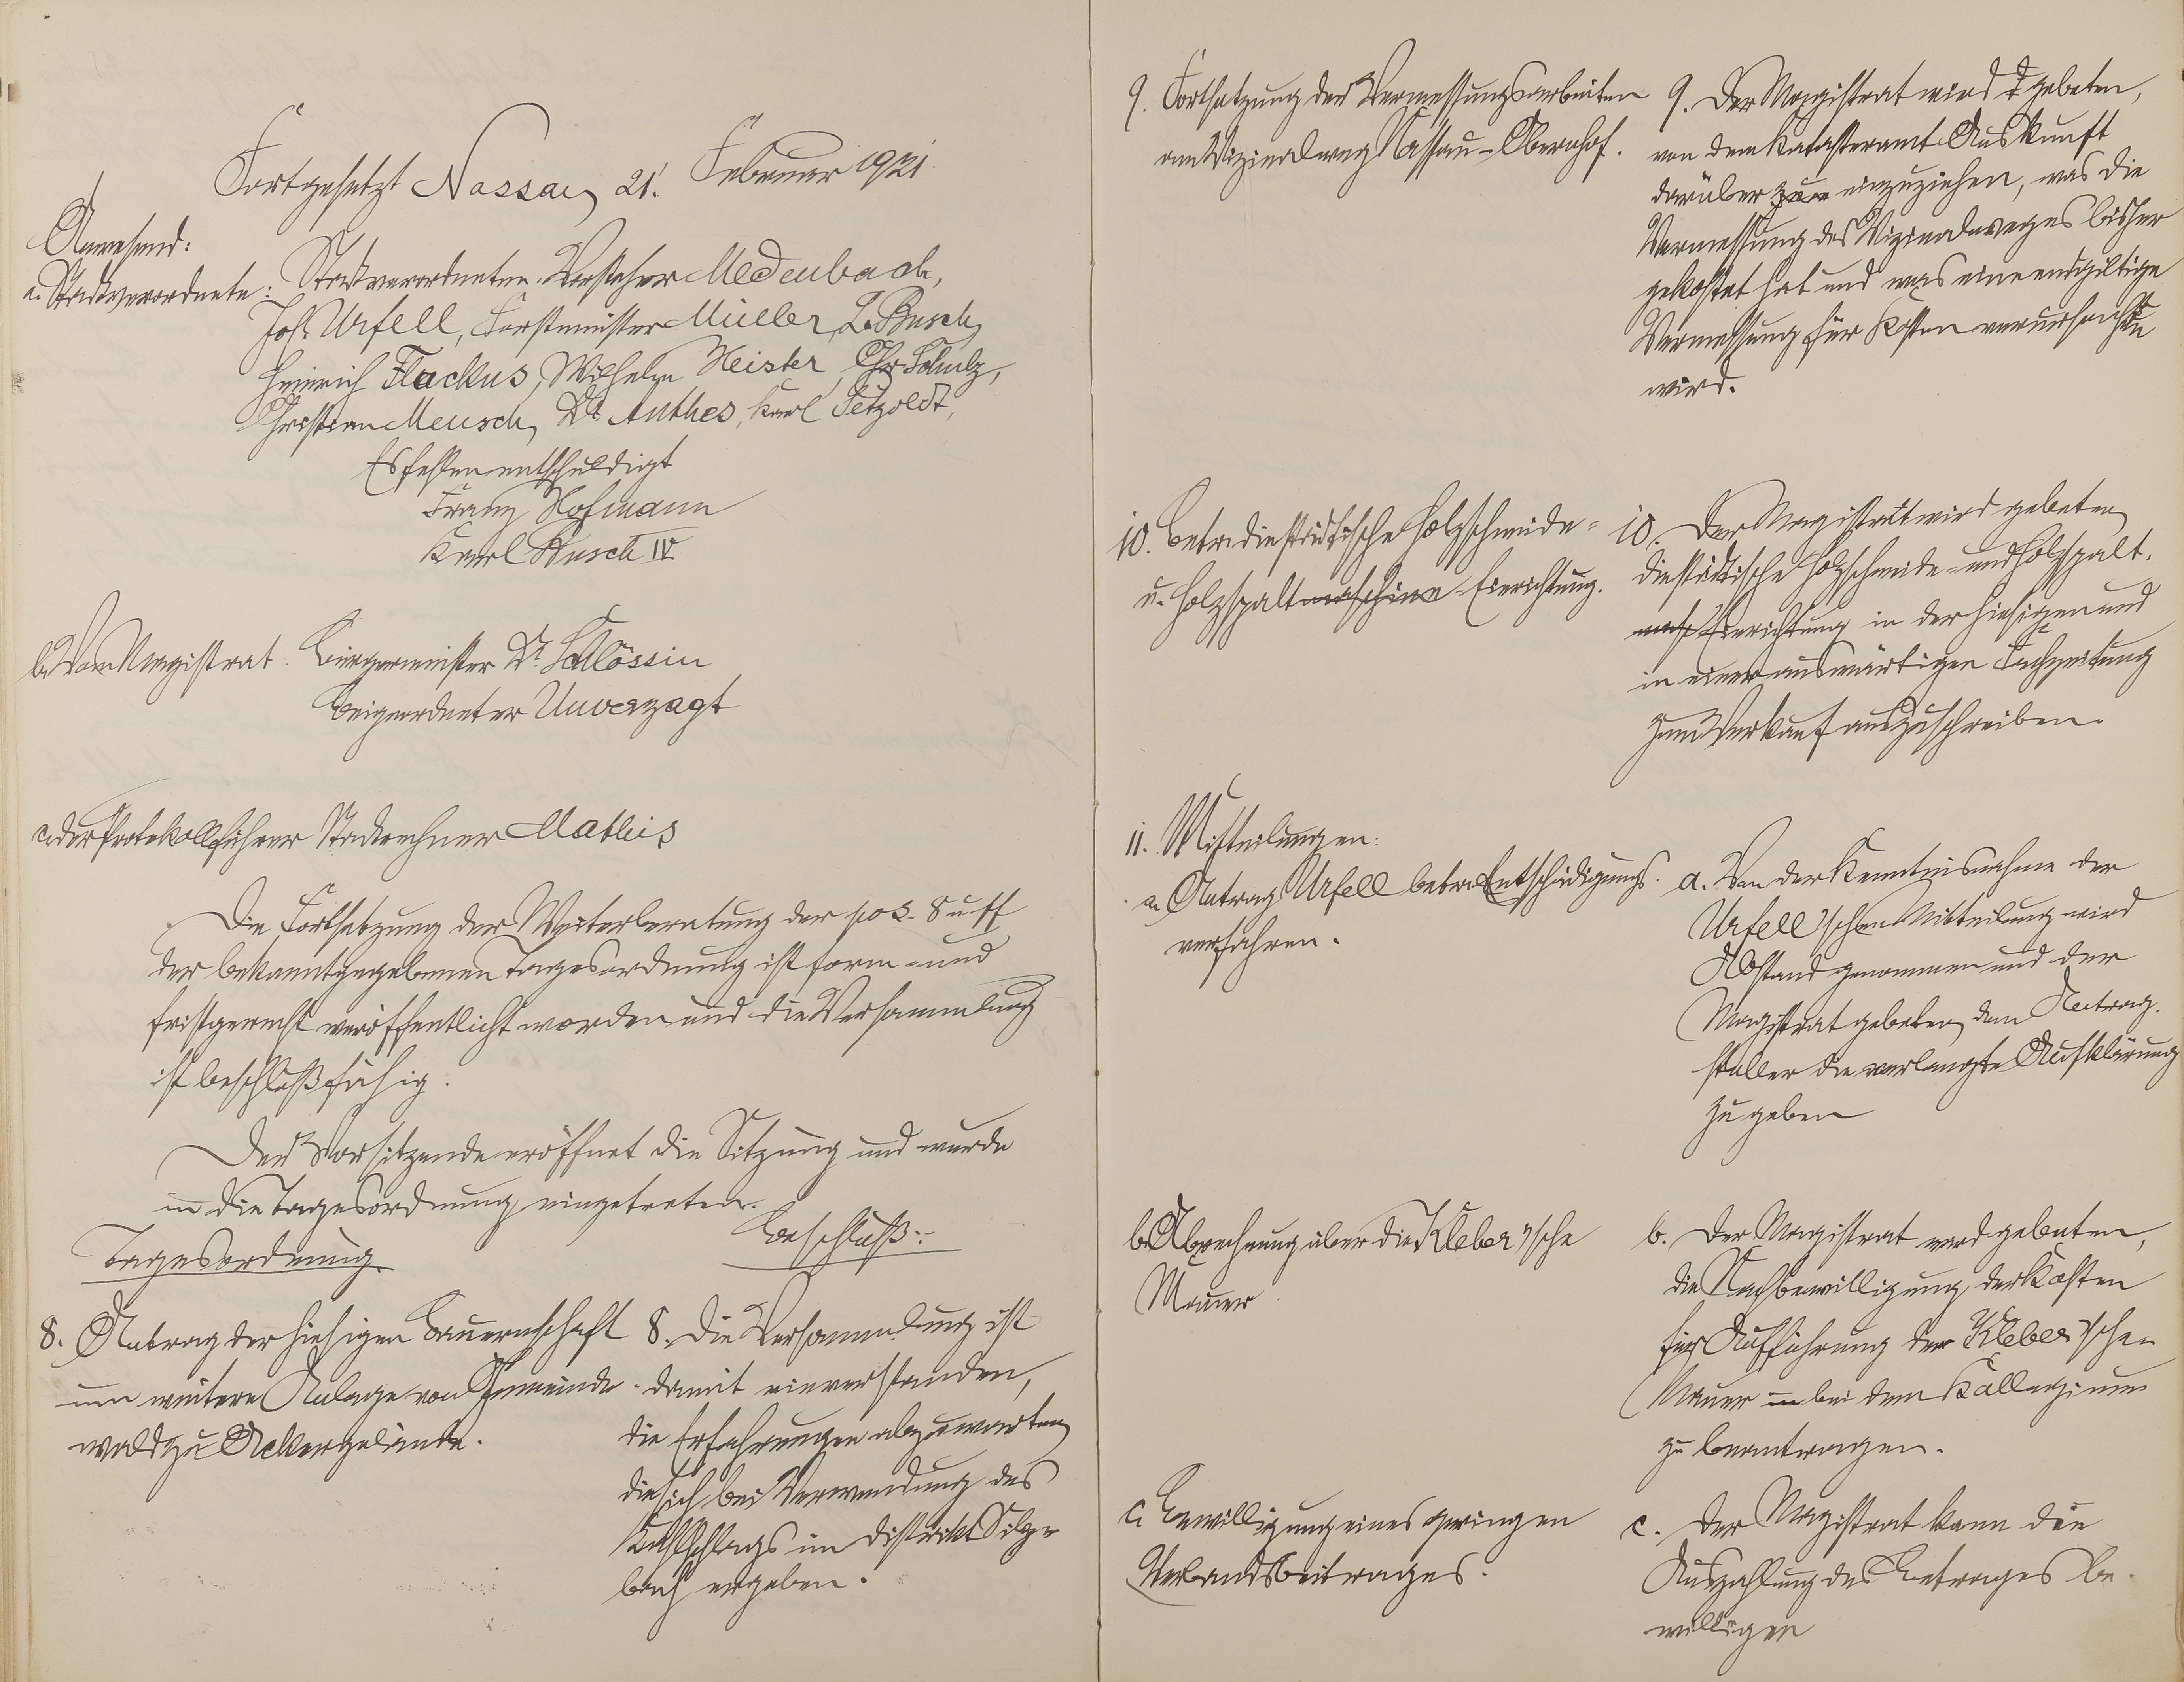 Fortgesetzt Nassau, 21. Februar 1921.
Anwesend:
a. Stadtverordnete: Stadtverordneten-Vorsteher Medenbach,
Joh. Urfell, Forstmeister Müller, L. Busch,
Heinrich Flackus, Wilhelm Meister, Chr. Schulz,
Christian Meusch, Dr. Anthes, Karl Petzoldt,
Es fehlen entschuldigt
Franz Hofmann
Karl Busch IV.
b. Vom Magistrat: Bürgermeister Dr. Schlössin
Beigeordneter Unverzagt
c. der Protokollführer Stadtrechner Mathis
Die Fortsetzung der Weiterberatung der pos. 8 u ff
der bekanntgegebenen Tagesordnung ist form- und
fristgerecht veröffentlicht worden und die Versammlung
ist beschlußfähig.
Der Vorsitzende eröffnet die Sitzung und wurde
in die Tagesordnung eingetreten.
Tagesordnung.
8. Antrag der hiesigen Bauernschaft
um weitere Anlage von Gemeinde-
wald zu Ackergelände.
Beschluß:
8. Die Versammlung ist
damit einverstanden,
die Erfahrungen abzuwarten
die sich bei Verwendung des
Kahlschlags im Distrikt Silz-
bach ergeben.
9. Fortsetzung der Vermessungsarbeiten
am Vizinalweg Nassau-Obernhof.
9. Der Magistrat wird gebeten,
von dem Katasteramt Auskunft
darüber zur einzuziehen, was die
Vermessung des Vizinalweges bisher
gekostet hat und was eine endgiltige
Vermessung für Kosten verursachen
wird.
10. Betr. die städtische Holzschneide-
u. Holzspaltmaschine-Einrichtung.
10. Der Magistrat wird gebeten
die städtische Holzschneide- und Holzspalt-
masch Einrichtung in der hiesigen und
in einer auswärtigen Fachzeitung
zum Verkauf auszuschreiben.
11. Mitteilungen:
a. Antrag Urfell betr. Entschädigungs-
verfahren.
a. Von der Kenntnisnahme der
Urfell'schen Mitteilung wird
Abstand genommen und der
Magistrat gebeten, dem Antrag-
steller die verlangte Aufklärung
zu geben
b. Abrechnung über die Kleber'sche
Mauer
b. Der Magistrat wird gebeten,
die Nachbewilligung der Kosten
für Aufführung der Kleber'schen
Mauer bei dem Kollegium
zu beantragen.
c. Bewilligung eines geringen
Verbandsbeitrages.
c. Der Magistrat kann die
Auszahlung des Betrages be-
willigen